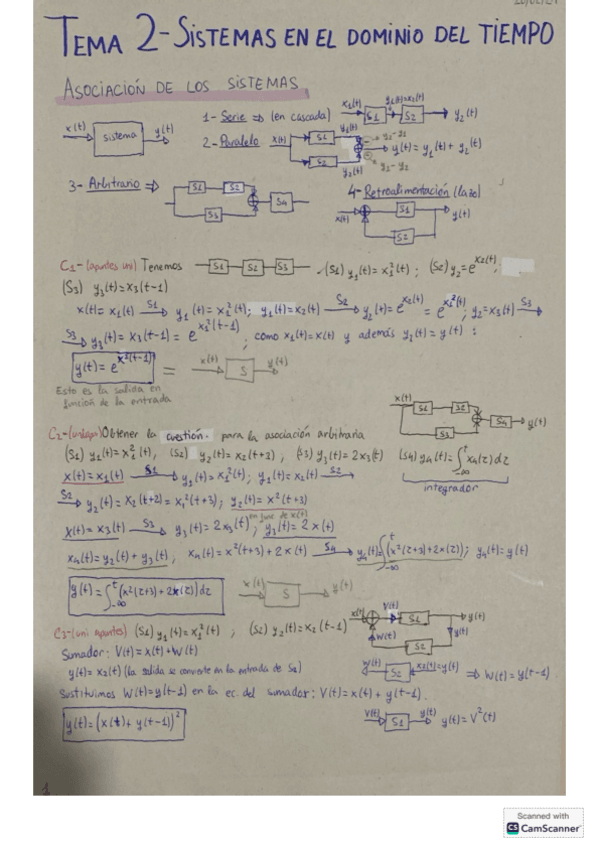 TEMA 2-SISTEMAS EN EL DOMINIO DEL TIEMPO
ASOCIACIÓN DE LOS SISTEMAS
x(t) sistema y(t)
1- Serie ⇒ (en cascada) x₁(t) S1 y₁(t)=x₂(t) S2 y₂(t)
2- Paralelo x(t) S1 S2 y₁(t) y₂(t) y(t) = y₁(t) + y₂(t)
y₁-y₂
3- Arbitrario ⇒ S1 S2 S3 S4
4- Retroalimentación (lazo)
x(t) S1 S2 y(t)
C1-(apuntes uni) Tenemos S1 S2 S3 (S1) y₁(t)=x₁²(t) ; (S2) y₂=e^x₂(t) ;
(S3) y₃(t)=x₃(t-1)
x(t)=x₁(t) S1→ y₁(t)=x₁²(t); y₁(t)=x₂(t) S2→ y₂(t)=e^x₂(t) = e^x₁²(t) ; y₂=x₃(t) S3→
S3→ y₃(t)=x₃(t-1) = e^x₁²(t-1) ; como x₁(t)=x(t) y además y₃(t)=y(t) :
y(t)=e^x²(t-1) = x(t) S y(t)
Esto es la salida en
función de la entrada
x(t) S1 S2 S3 S4 y(t)
Obtener la cuestión. para la asociación arbitraria
(S1) y₁(t)=x₁²(t), (S2) y₂(t)=x₂(t+3) ; (S3) y₃(t)=2x₃(t) (S4) y₄(t)=∫_-∞^t x₄(τ)dτ
integrador
x(t)=x₁(t) S1→ y₁(t)=x₁²(t); y₁(t)=x₂(t) S2→
S2→ y₂(t)=x₂(t+3)=x₁²(t+3); y₂(t)=x²(t+3)
en func de x(t)
x(t)=x₃(t) S3→ y₃(t)=2x₃(t); y₃(t)=2x(t)
x₄(t)=y₂(t)+y₃(t), x₄(t)=x²(t+3)+2x(t) S4→ y₄(t)=∫_-∞^t(x²(τ+3)+2x(τ)); y₄(t)=y(t)
y(t)=∫_-∞^t(x²(τ+3)+2x(τ))dτ x(t) S y(t)
C3-(uni apuntes) (S1) y₁(t)=x₁²(t) ; (S2) y₂(t)=x₂(t-1) x(t) V(t) S1 y(t)
W(t) S2 y(t)
Sumador: V(t)=x(t)+W(t)
y(t)=x₂(t) (la salida se convierte en la entrada de S2) W(t) S2 x₂(t)=y(t) ⇒ W(t)=y(t-1)
Sustituimos W(t)=y(t-1) en la ec. del sumador: V(t)=x(t)+y(t-1).
y(t)=(x(t)+y(t-1))² V(t) S1 y(t) y(t)=V²(t)
1
Scanned with
CS CamScanner